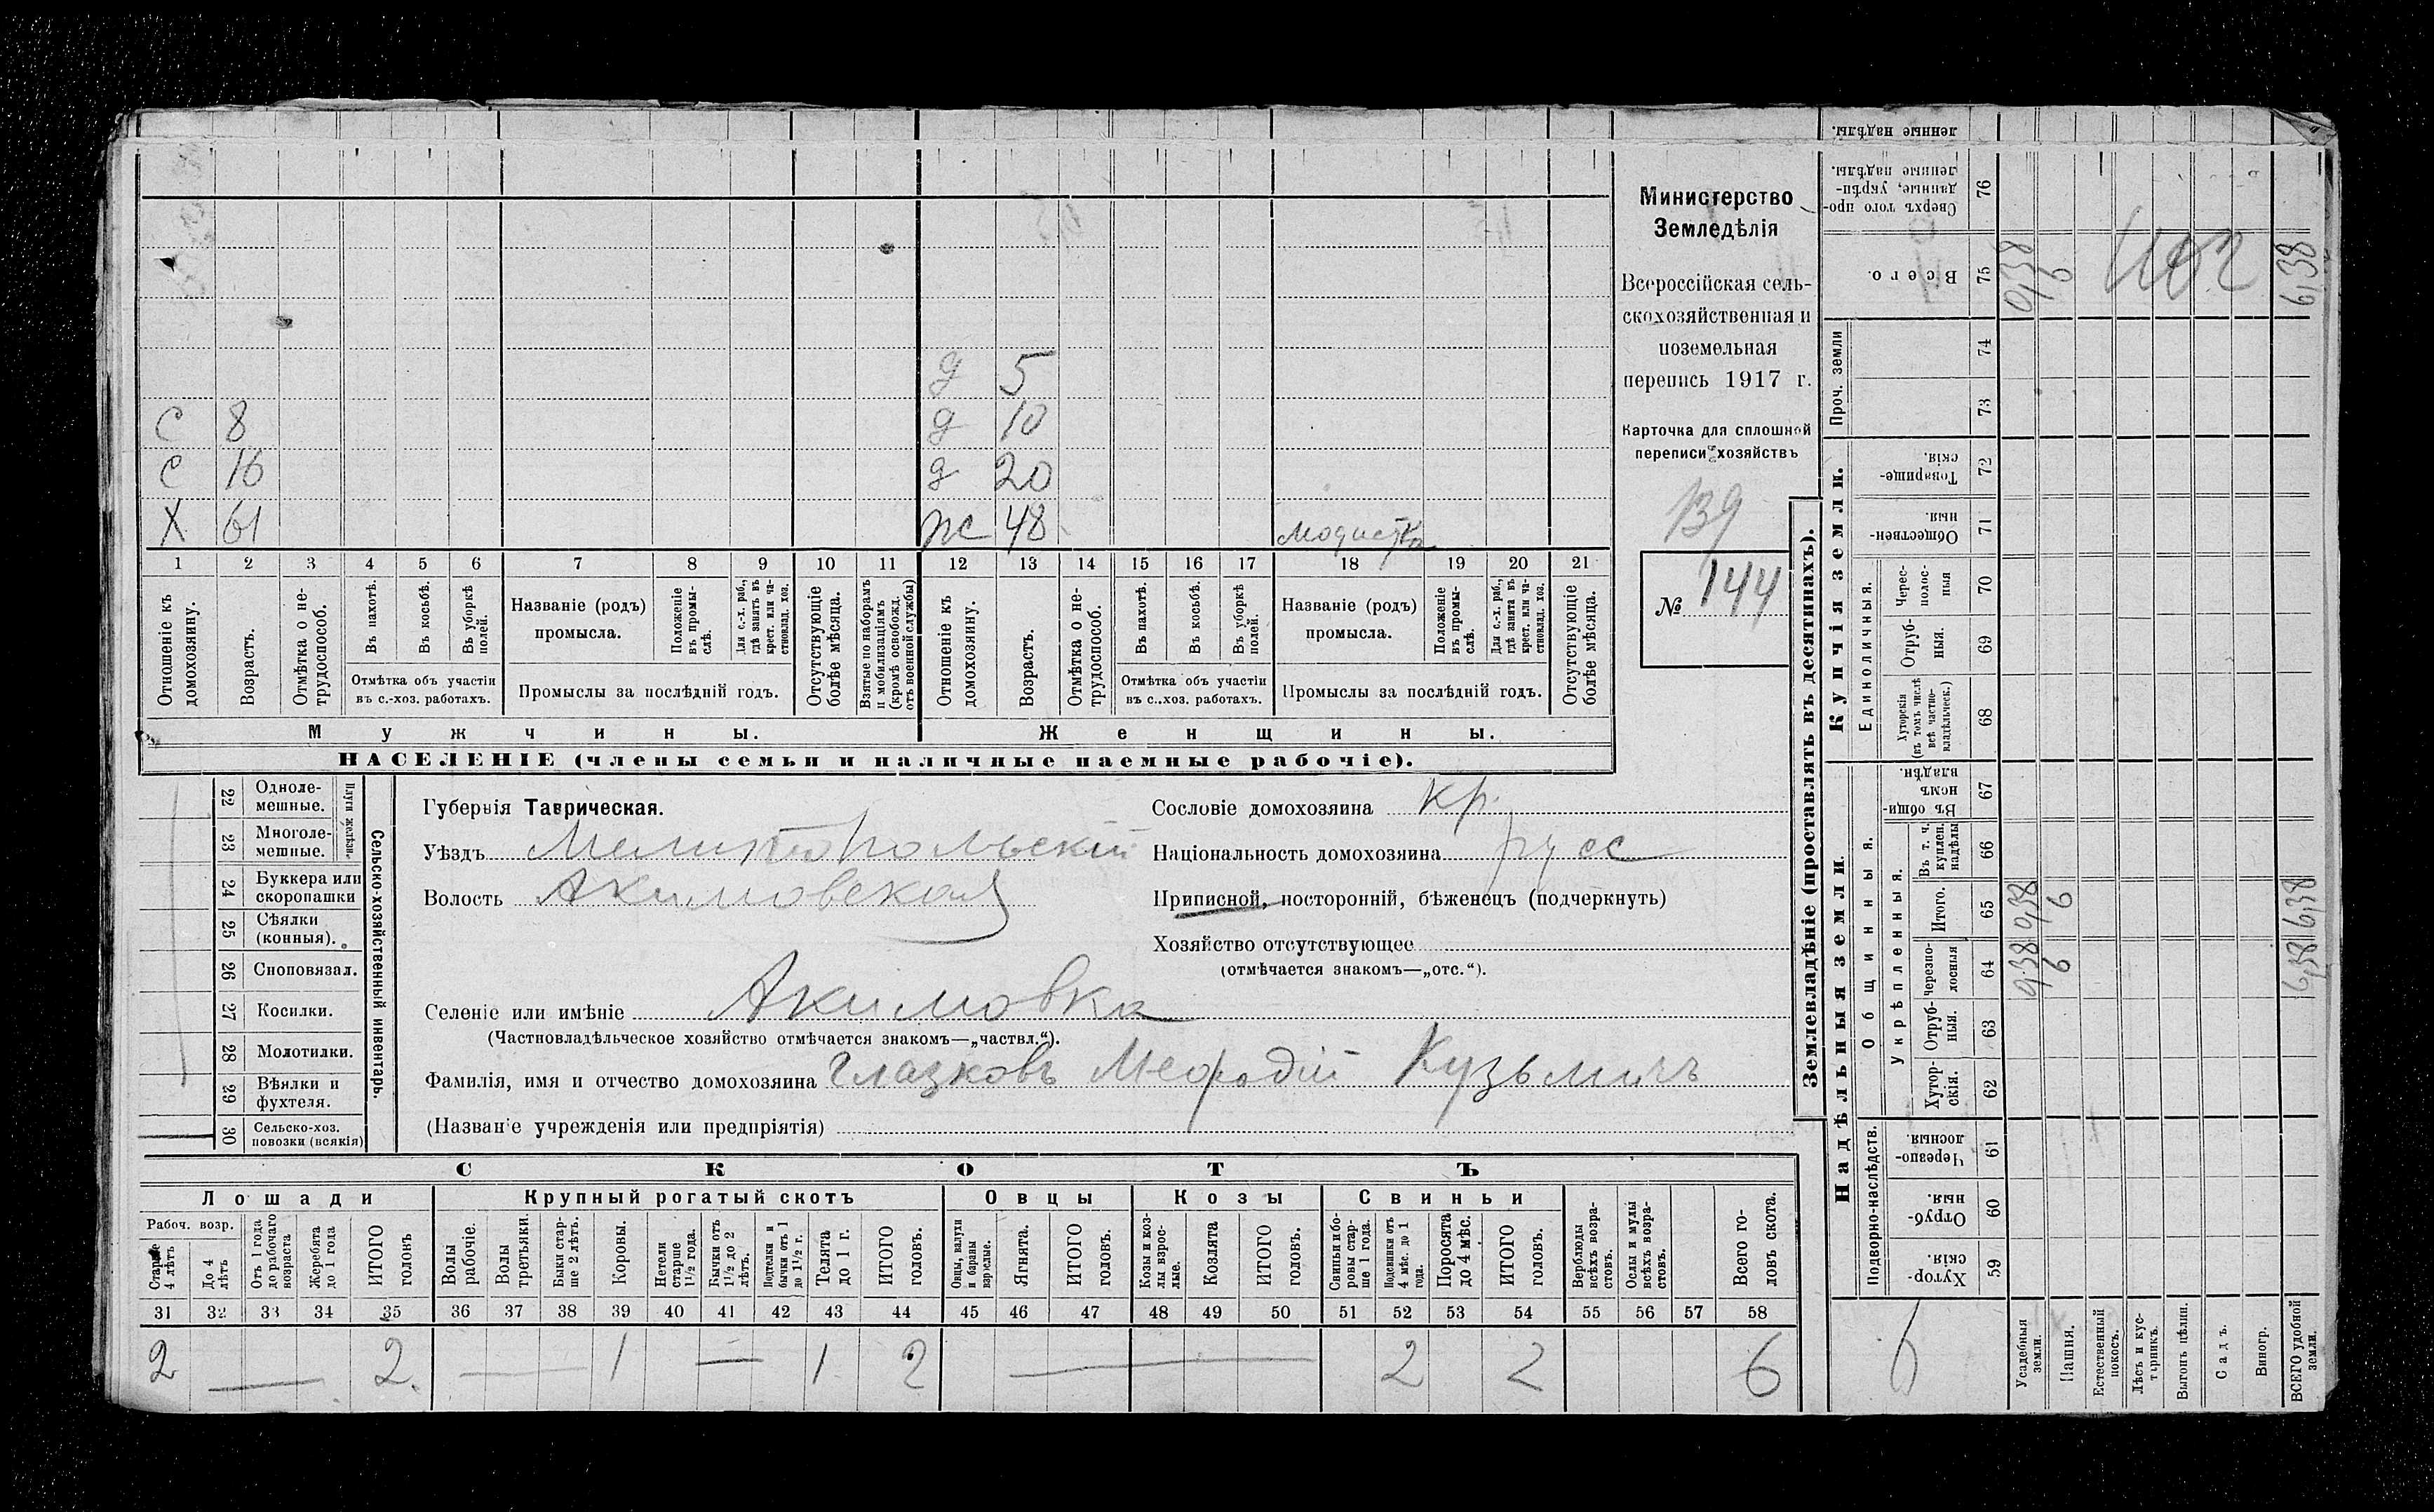 С 8
С 16
Х 61
д 5
д 10
д 20
ж 48 модистка
1 2 3 4 5 6 7 8 9 10 11 12 13 14 15 16 17 18 19 20 21
Отношеніе къ домохозяину.
Возрастъ.
Отмѣтка о нетрудоспособ.
Въ пахотѣ.
Въ косьбѣ.
Въ уборкѣ полей.
Отмѣтка объ участіи
въ с.-хоз. работахъ.
Названіе (родъ)
промысла.
Положеніе въ промыслѣ.
Для с.-х. раб., гдѣ занятъ въ крест. или частновлад. хоз.
Промыслы за послѣдній годъ.
Отсутствующіе болѣе мѣсяца.
Взятые по наборамъ и мобилизаціямъ (кромѣ освобожд. отъ военной службы)
Отношеніе къ домохозяину.
Возрастъ.
Отмѣтка о нетрудоспособ.
Въ пахотѣ.
Въ косьбѣ.
Въ уборкѣ полей.
Отмѣтка объ участіи
въ с.-хоз. работахъ.
Названіе (родъ)
промысла.
Положеніе въ промыслѣ.
Для с.-х. раб., гдѣ занята въ крест. или частновлад. хоз.
Промыслы за послѣдній годъ.
Отсутствующіе болѣе мѣсяца.
Мужчины. Женщины.
НАСЕЛЕНІЕ (члены семьи и наличные наемные рабочіе).
Министерство
Земледѣлія
Всероссійская сель-
скохозяйственная и
поземельная
перепись 1917 г.
Карточка для сплошной
переписи хозяйствъ
139
№ 144
22 Однолемешные.
23 Многолемешные.
Плуги желѣзн.
24 Буккера или скоропашки
25 Сѣялки (конныя).
26 Сноповязал.
27 Косилки.
28 Молотилки.
29 Вѣялки и фухтеля.
30 Сельско-хоз. повозки (всякія)
Сельско-хозяйственный инвентарь.
Губернія Таврическая.
Уѣздъ Мелитопольскій
Волость Акимовская
Сословіе домохозяина кр.
Національность домохозяина русс
Приписной, посторонній, бѣженецъ (подчеркнуть)
Хозяйство отсутствующее
(отмѣчается знакомъ—„отс.“).
Селеніе или имѣніе Акимовка
(Частновладѣльческое хозяйство отмѣчается знакомъ—„частвл.“).
Фамилія, имя и отчество домохозяина Глазковъ Мефодій Кузьмичъ
(Названіе учрежденія или предпріятія)
СКОТЪ
Лошади Крупный рогатый скотъ Овцы Козы Свиньи
Рабоч. возр.
Старше 4 лѣтъ
До 4 лѣтъ
Отъ 1 года до рабочаго возраста
Жеребята до 1 года
ИТОГО головъ
Волы рабочіе.
Волы третьяки.
Быки старше 2 лѣтъ.
Коровы.
Нетели старше 1½ года.
Бычки отъ 1½ до 2 лѣтъ.
Подтелки и бычки отъ 1 до 1½ г.
Телята до 1 г.
ИТОГО головъ.
Овцы, валухи и бараны взрослые.
Ягнята.
ИТОГО головъ.
Козы и козлы взрослые.
Козлята
ИТОГО головъ.
Свиньи и боровы старше 1 года.
Подсвинки отъ 4 мѣс. до 1 года.
Поросята до 4 мѣс.
ИТОГО головъ.
Верблюды всѣхъ возрастовъ.
Ослы и мулы всѣхъ возрастовъ.
Всего головъ скота.
31 32 33 34 35 36 37 38 39 40 41 42 43 44 45 46 47 48 49 50 51 52 53 54 55 56 57 58
2 — 2 — 1 — 1 2 — 2 2 6
Землевладѣніе (проставлять въ десятинахъ).
Надѣльныя земли. Купчія земли. Проч. земли
Подворно-наслѣдств.
Общинныя.
Укрѣпленныя.
Единоличныя.
59 Хуторскія
60 Отрубныя.
61 Черезполосныя.
62 Хуторскія.
63 Отрубныя.
64 Черезполосныя
65 Итого.
66 Въ т. ч. куплен. надѣлы
67 Въ общинномъ владѣн.
68 Хуторскія (въ томъ числѣ всѣ частновладѣльческ.)
69 Отрубныя.
70 Череcполосныя
71 Общественныя
72 Товарищескія.
73
74
75 Всего.
76 Сверхъ того проданные, укрѣпленные надѣлы.
ленные надѣлы.
Усадебныя земли.
Пашня.
Естественный покосъ.
Лѣсъ и кустарникъ.
Выгонъ цѣлин.
Садъ.
Виногр.
ВСЕГО удобной земли.
0,38 6 6,38
0,38 6 6,38
0,38 6 6,38
6